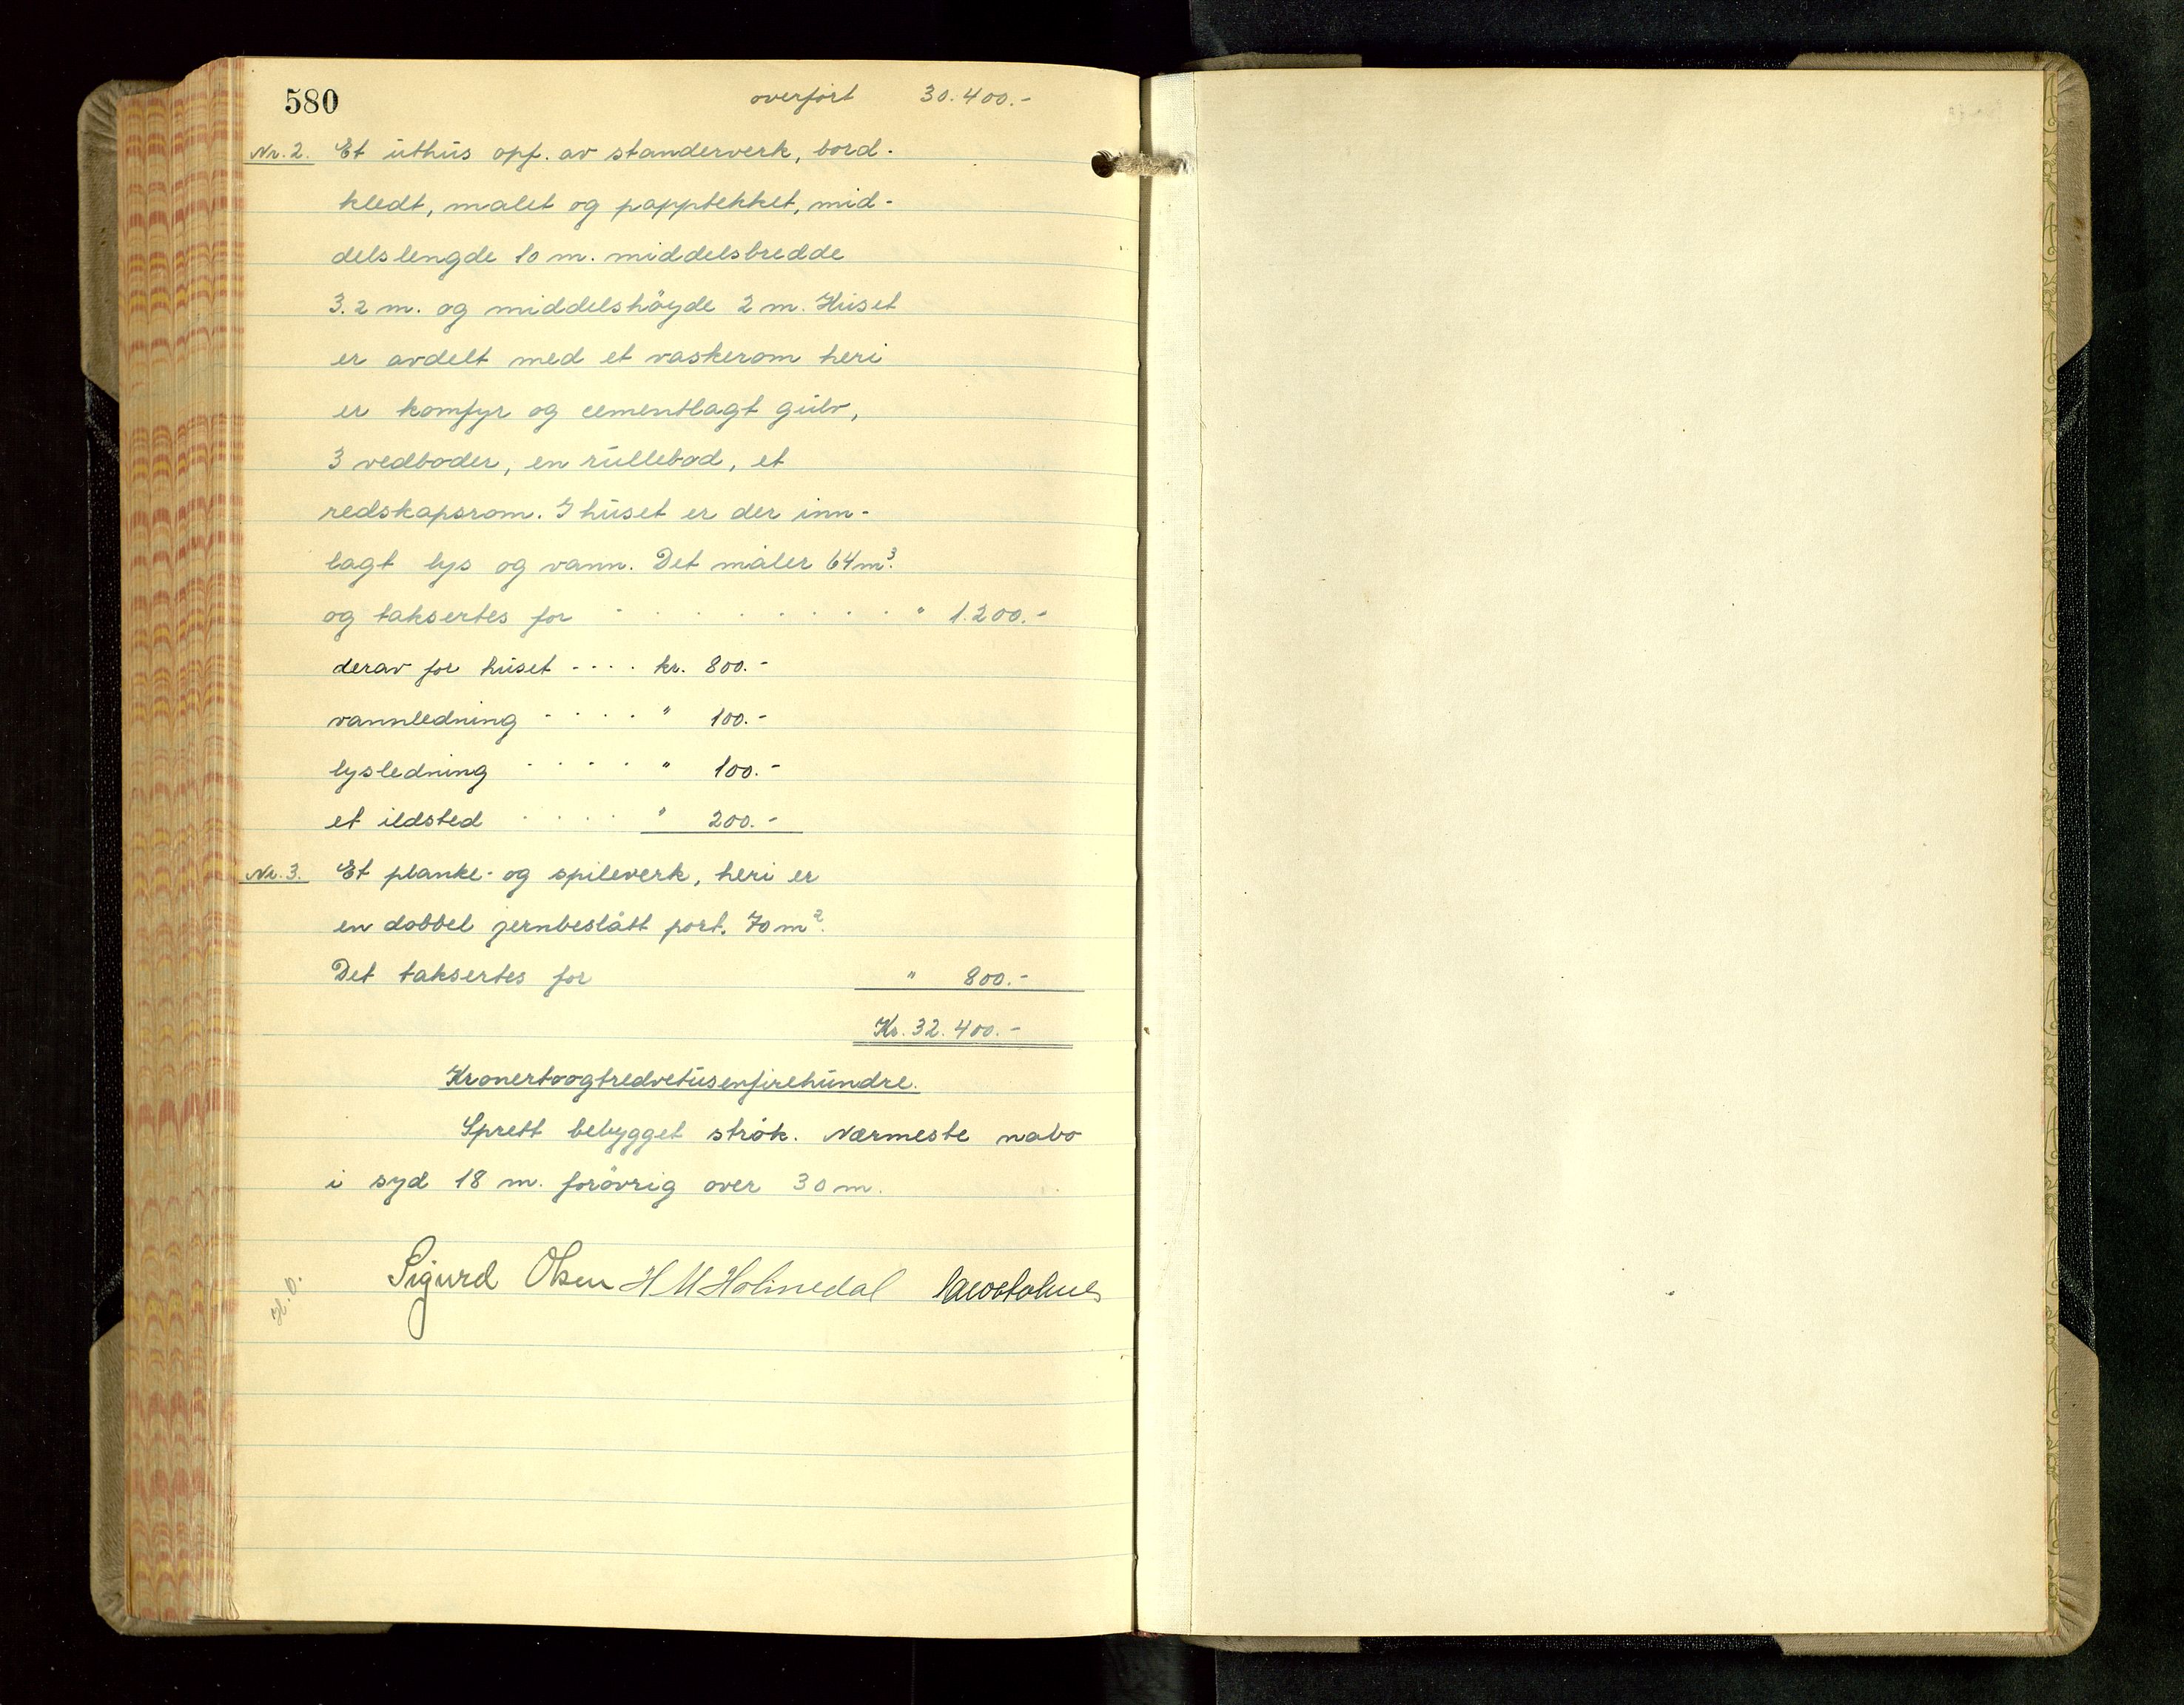 580
overført 30.400.-
Nr. 2. Et uthus opf. av standerverk, bord-
kledt, malet og papptekket, mid-
delslengde 10 m. middelsbredde
3.2 m. og middelshöyde 2 m. Huset
er avdelt med et vaskerom heri
er komfyr og cementlagt gulv,
3 vedboder, en rullebod, et
redskapsrom. I huset er der inn-
lagt lys og vann. Det måler 64 m³.
og taksertes for - . . . . . . . . " 1.200.-
derav for huset - . . . kr. 800.-
vannledning - . . . . " 100.-
lysledning . . . . . " 100.-
et ildsted . . . . " 200.-
Nr. 3. Et planke- og spileverk, heri er
en dobbel jernbeslått port. 70 m².
Det taksertes for " 800.-
Kr. 32.400.-
Kronertoogtredvetusenfirehundre.
Sprett bebygget strök. Nærmeste nabo
i syd 18 m. forövrig over 30 m.
Sigurd Olsen H M Holmedal
H.O.